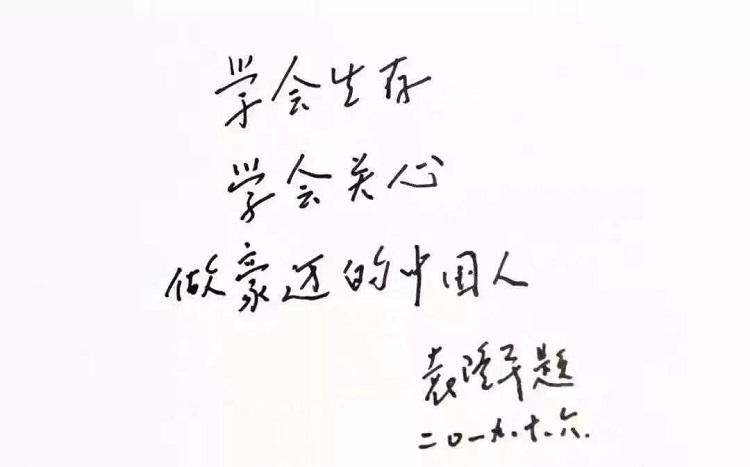 学会生存
学会关心
做豪迈的中国人
袁隆平题
二0一九.十.六.